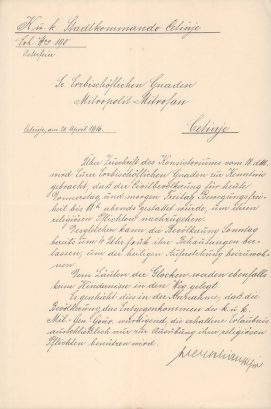 K. u. k. Stadtkommando Cetinje
Exh. Nro 190
Osterfeier
Sr. Erzbischöflichen Gnaden
Metropolit Mitrofan
Cetinje, am 20. April 1916.
Cetinje.
Über Zuschrift des Konsistoriums vom 18. d. M.
wird Euer Erzbischöflichen Gnaden zur Kenntnis
gebracht, daß der Civilbevölkerung für heute
Donnerstag und morgen Freitag Bewegungsfrei-
heit bis 11h abends gestattet wurde, um ihren
religiösen Pflichten nachzugehen.
Desgleichen kann die Bevölkerung Sonntag
bereits um 4 Uhr früh ihre Behausungen ver-
lassen, um der heiligen Auferstehung beizuwoh-
nen.
Dem Läuten der Glocken werden ebenfalls
keine Hindernisse in den Weg gelegt.
Es geschieht dies in der Annahme, daß die
Bevölkerung das Entgegenkommen des k. u. k.
Mil. Gen. Gouv. würdigend, die erhaltene Erlaubnis
ausschließlich nur zur Ausübung ihrer religiösen
Pflichten benützen wird.